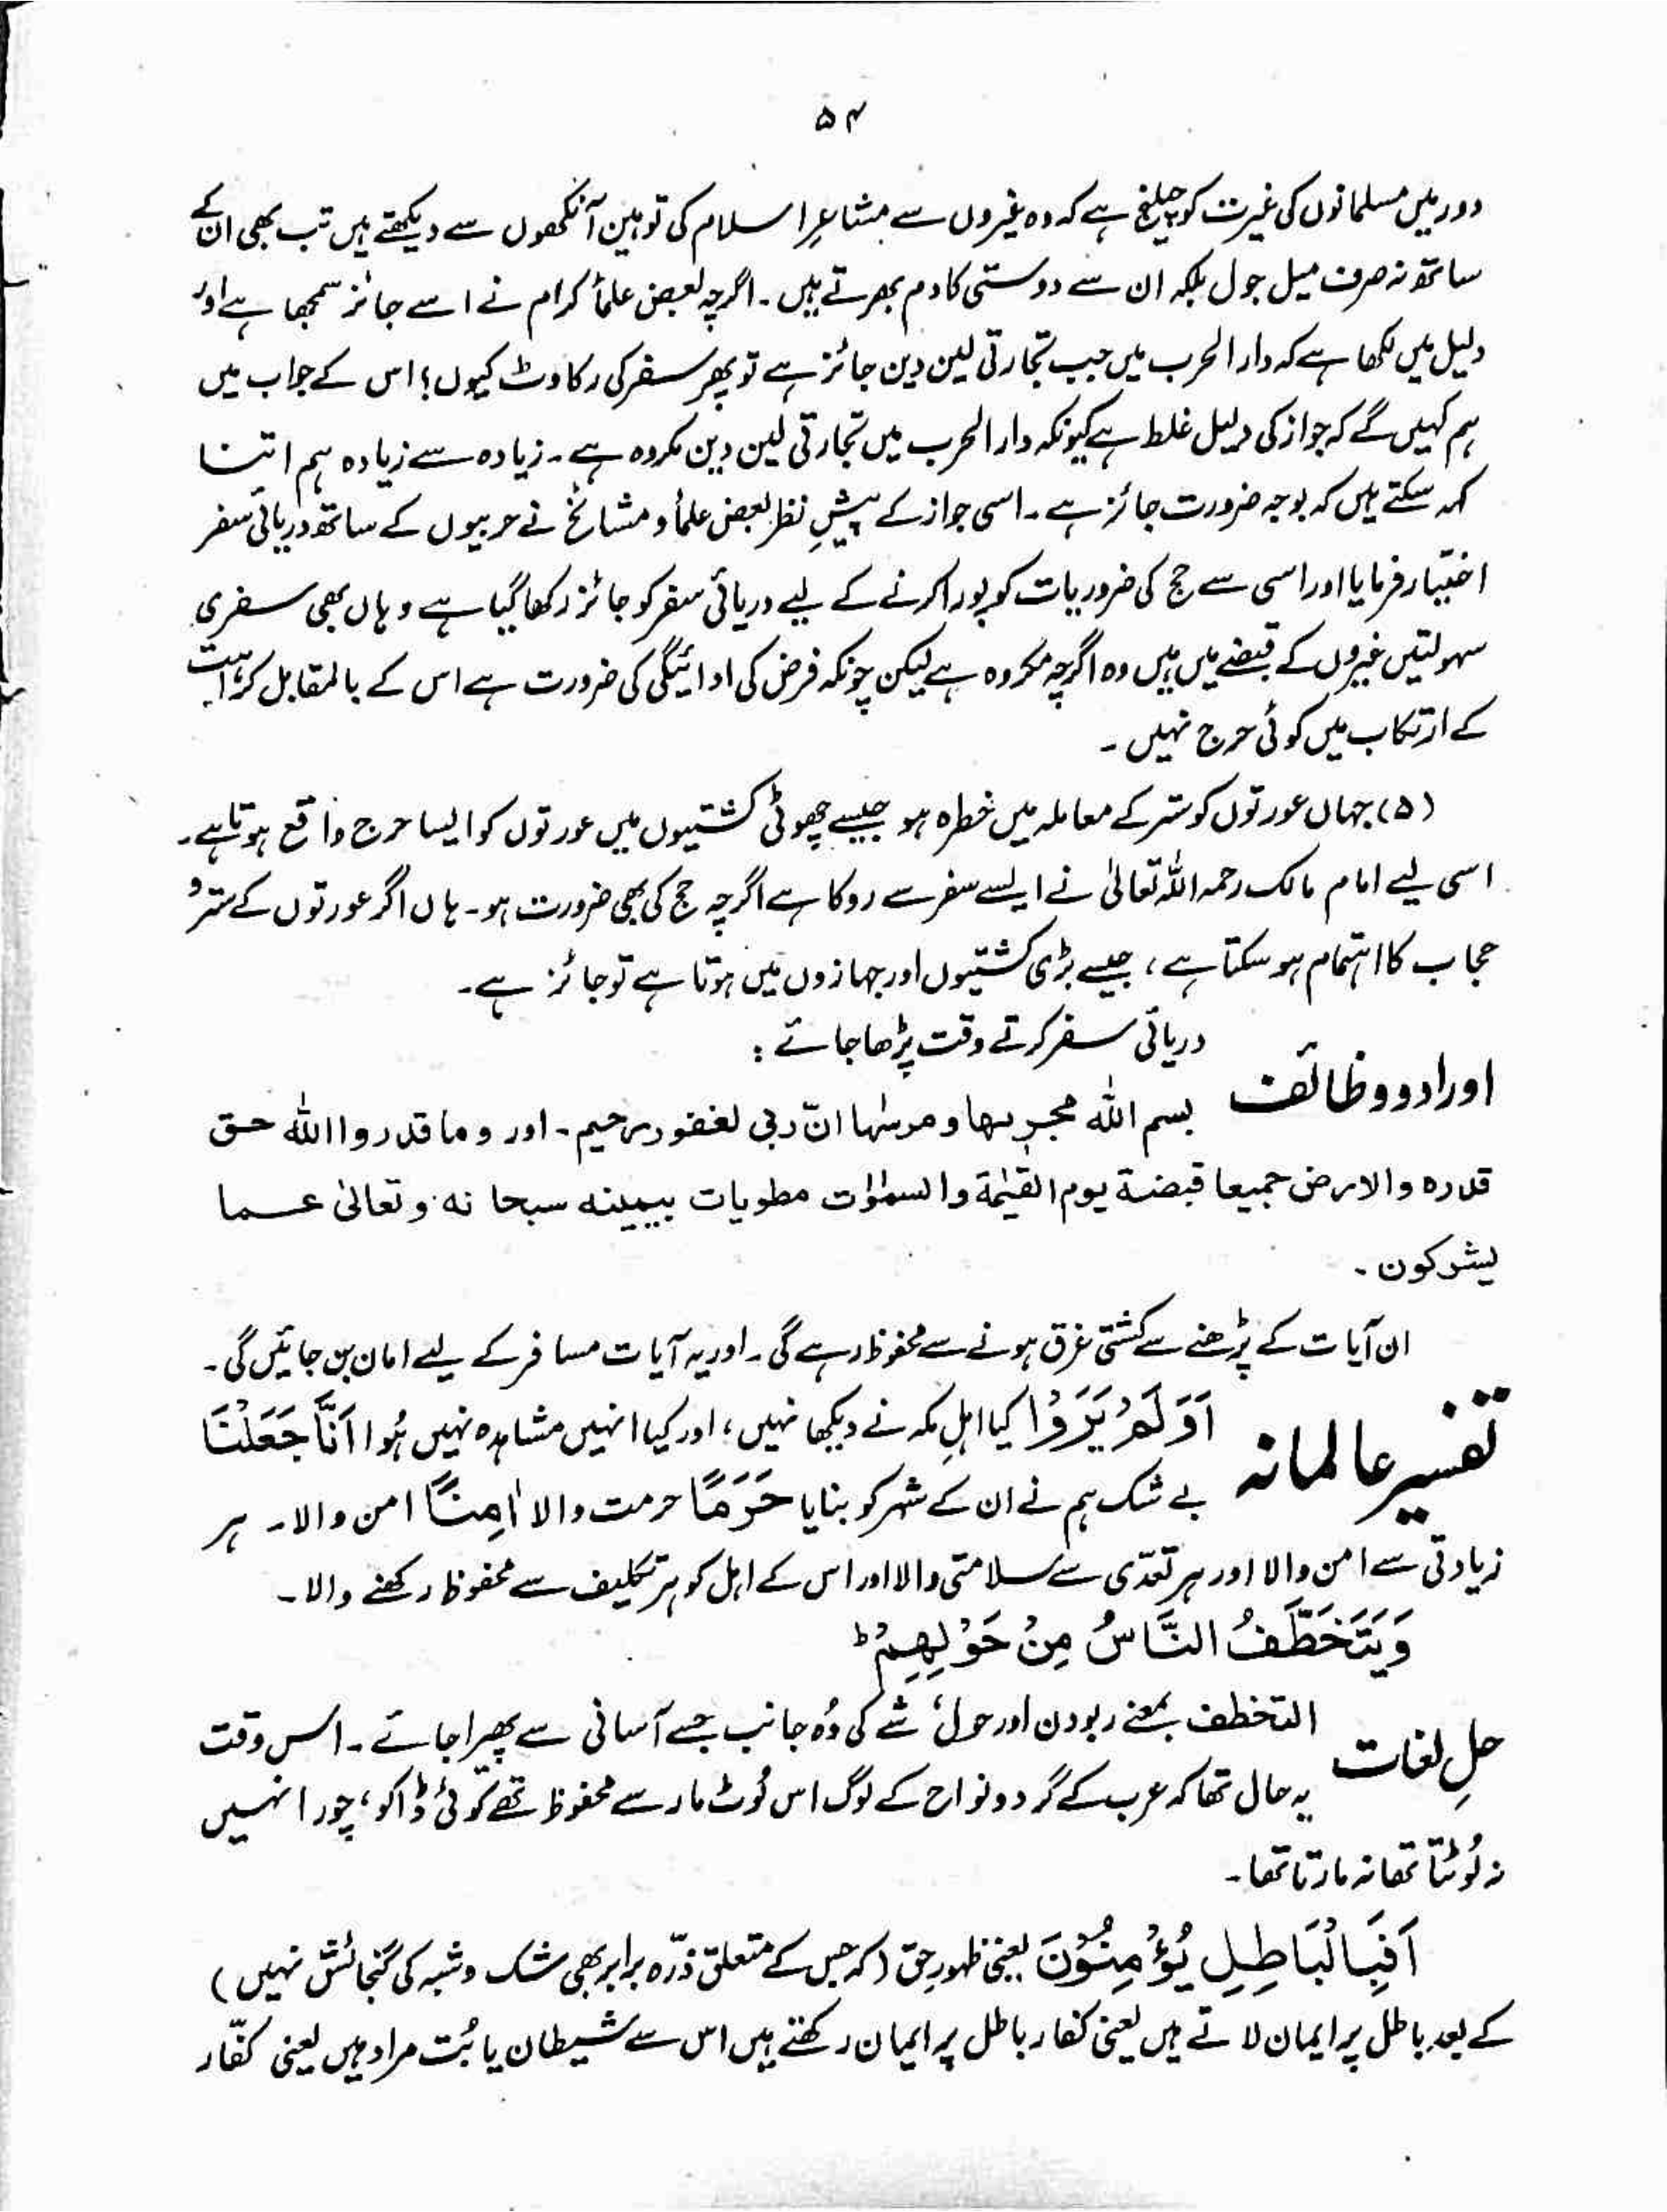 ۵۴
دور میں مسلمانوں کی غیرت کو چیلنج ہے کہ وہ غیروں سے مشاعرِ اسلام کی توہین آنکھوں سے دیکھتے ہیں تب بھی ان کے
ساتھ نہ صرف میل جول بلکہ ان سے دوستی کا دم بھرتے ہیں۔ اگرچہ بعض علمأ کرام نے اسے جائز سمجھا ہے اور
دلیل میں لکھا ہے کہ دار الحرب میں جب تجارتی لین دین جائز ہے تو پھر سفر کی رکاوٹ کیوں؟ اس کے جواب میں
ہم کہیں گے کہ جواز کی دلیل غلط ہے کیونکہ دار الحرب میں تجارتی لین دین مکروہ ہے۔ زیادہ سے زیادہ ہم اتنا
کہہ سکتے ہیں کہ بوجہ ضرورت جائز ہے۔ اسی جواز کے پیشِ نظر بعض علمأ و مشائخ نے حربیوں کے ساتھ دریائی سفر
اختیار فرمایا اور اسی سے حج کی ضروریات کو پورا کرنے کے لیے دریائی سفر کو جائز رکھا گیا ہے وہاں بھی سفری
سہولتیں غیروں کے قبضے میں ہیں وہ اگرچہ مکروہ ہے لیکن چونکہ فرض کی ادائیگی کی ضرورت ہے اس کے بالمقابل کراہت
کے ارتکاب میں کوئی حرج نہیں۔
(۵) جہاں عورتوں کو ستر کے معاملہ میں خطرہ ہو جیسے چھوٹی کشتیوں میں عورتوں کو ایسا حرج واقع ہوتا ہے۔
اسی لیے امام مالک رحمہ اللہ تعالیٰ نے ایسے سفر سے روکا ہے اگرچہ حج کی بھی ضرورت ہو۔ ہاں اگر عورتوں کے ستر و
حجاب کا اہتمام ہو سکتا ہے، جیسے بڑی کشتیوں اور جہازوں میں ہوتا ہے تو جائز ہے۔
دریائی سفر کرتے وقت پڑھا جائے :
اوراد و وظائف بسم اللہ مجرٖىها و مرسٰها انّ ربی لغفور رحیم۔ اور و ما قدروا اللہ حق
قدره والارض جمیعا قبضة یوم القیٰمة والسمٰوٰت مطویات بیمینه سبحانه و تعالیٰ عما
یشرکون۔
ان آیات کے پڑھنے سے کشتی غرق ہونے سے محفوظ رہے گی۔ اور یہ آیات مسافر کے لیے امان بن جائیں گی۔
تفسیر عالمانہ اَوَلَمْ يَرَوْا کیا اہلِ مکہ نے دیکھا نہیں، اور کیا انہیں مشاہدہ نہیں ہُوا اَنَّا جَعَلْنَا
بے شک ہم نے ان کے شہر کو بنایا حَرَمًا حرمت والا اٰمِنًا امن والا۔ ہر
زیادتی سے امن والا اور ہر تعدّی سے سلامتی والا اور اس کے اہل کو ہر تکلیف سے محفوظ رکھنے والا۔
وَيَتَخَطَّفُ النَّاسُ مِنْ حَوْلِهِمْ ؕ
حلِ لغات التخطف بمعنے ربودن اور حول، شے کی وُہ جانب جسے آسانی سے پھیرا جائے۔ اس وقت
یہ حال تھا کہ عرب کے گرد و نواح کے لوگ اس لُوٹ مار سے محفوظ تھے کوئی ڈاکو، چور انہیں
نہ لُوٹتا تھا نہ مارتا تھا۔
اَفَبِالْبَاطِلِ يُؤْمِنُوْنَ یعنی ظہورِ حق (کہ جس کے متعلق ذرّہ برابر بھی شک و شبہ کی گنجائش نہیں)
کے بعد باطل پر ایمان لاتے ہیں یعنی کفار باطل پر ایمان رکھتے ہیں اس سے شیطان یا بُت مراد ہیں یعنی کفّار